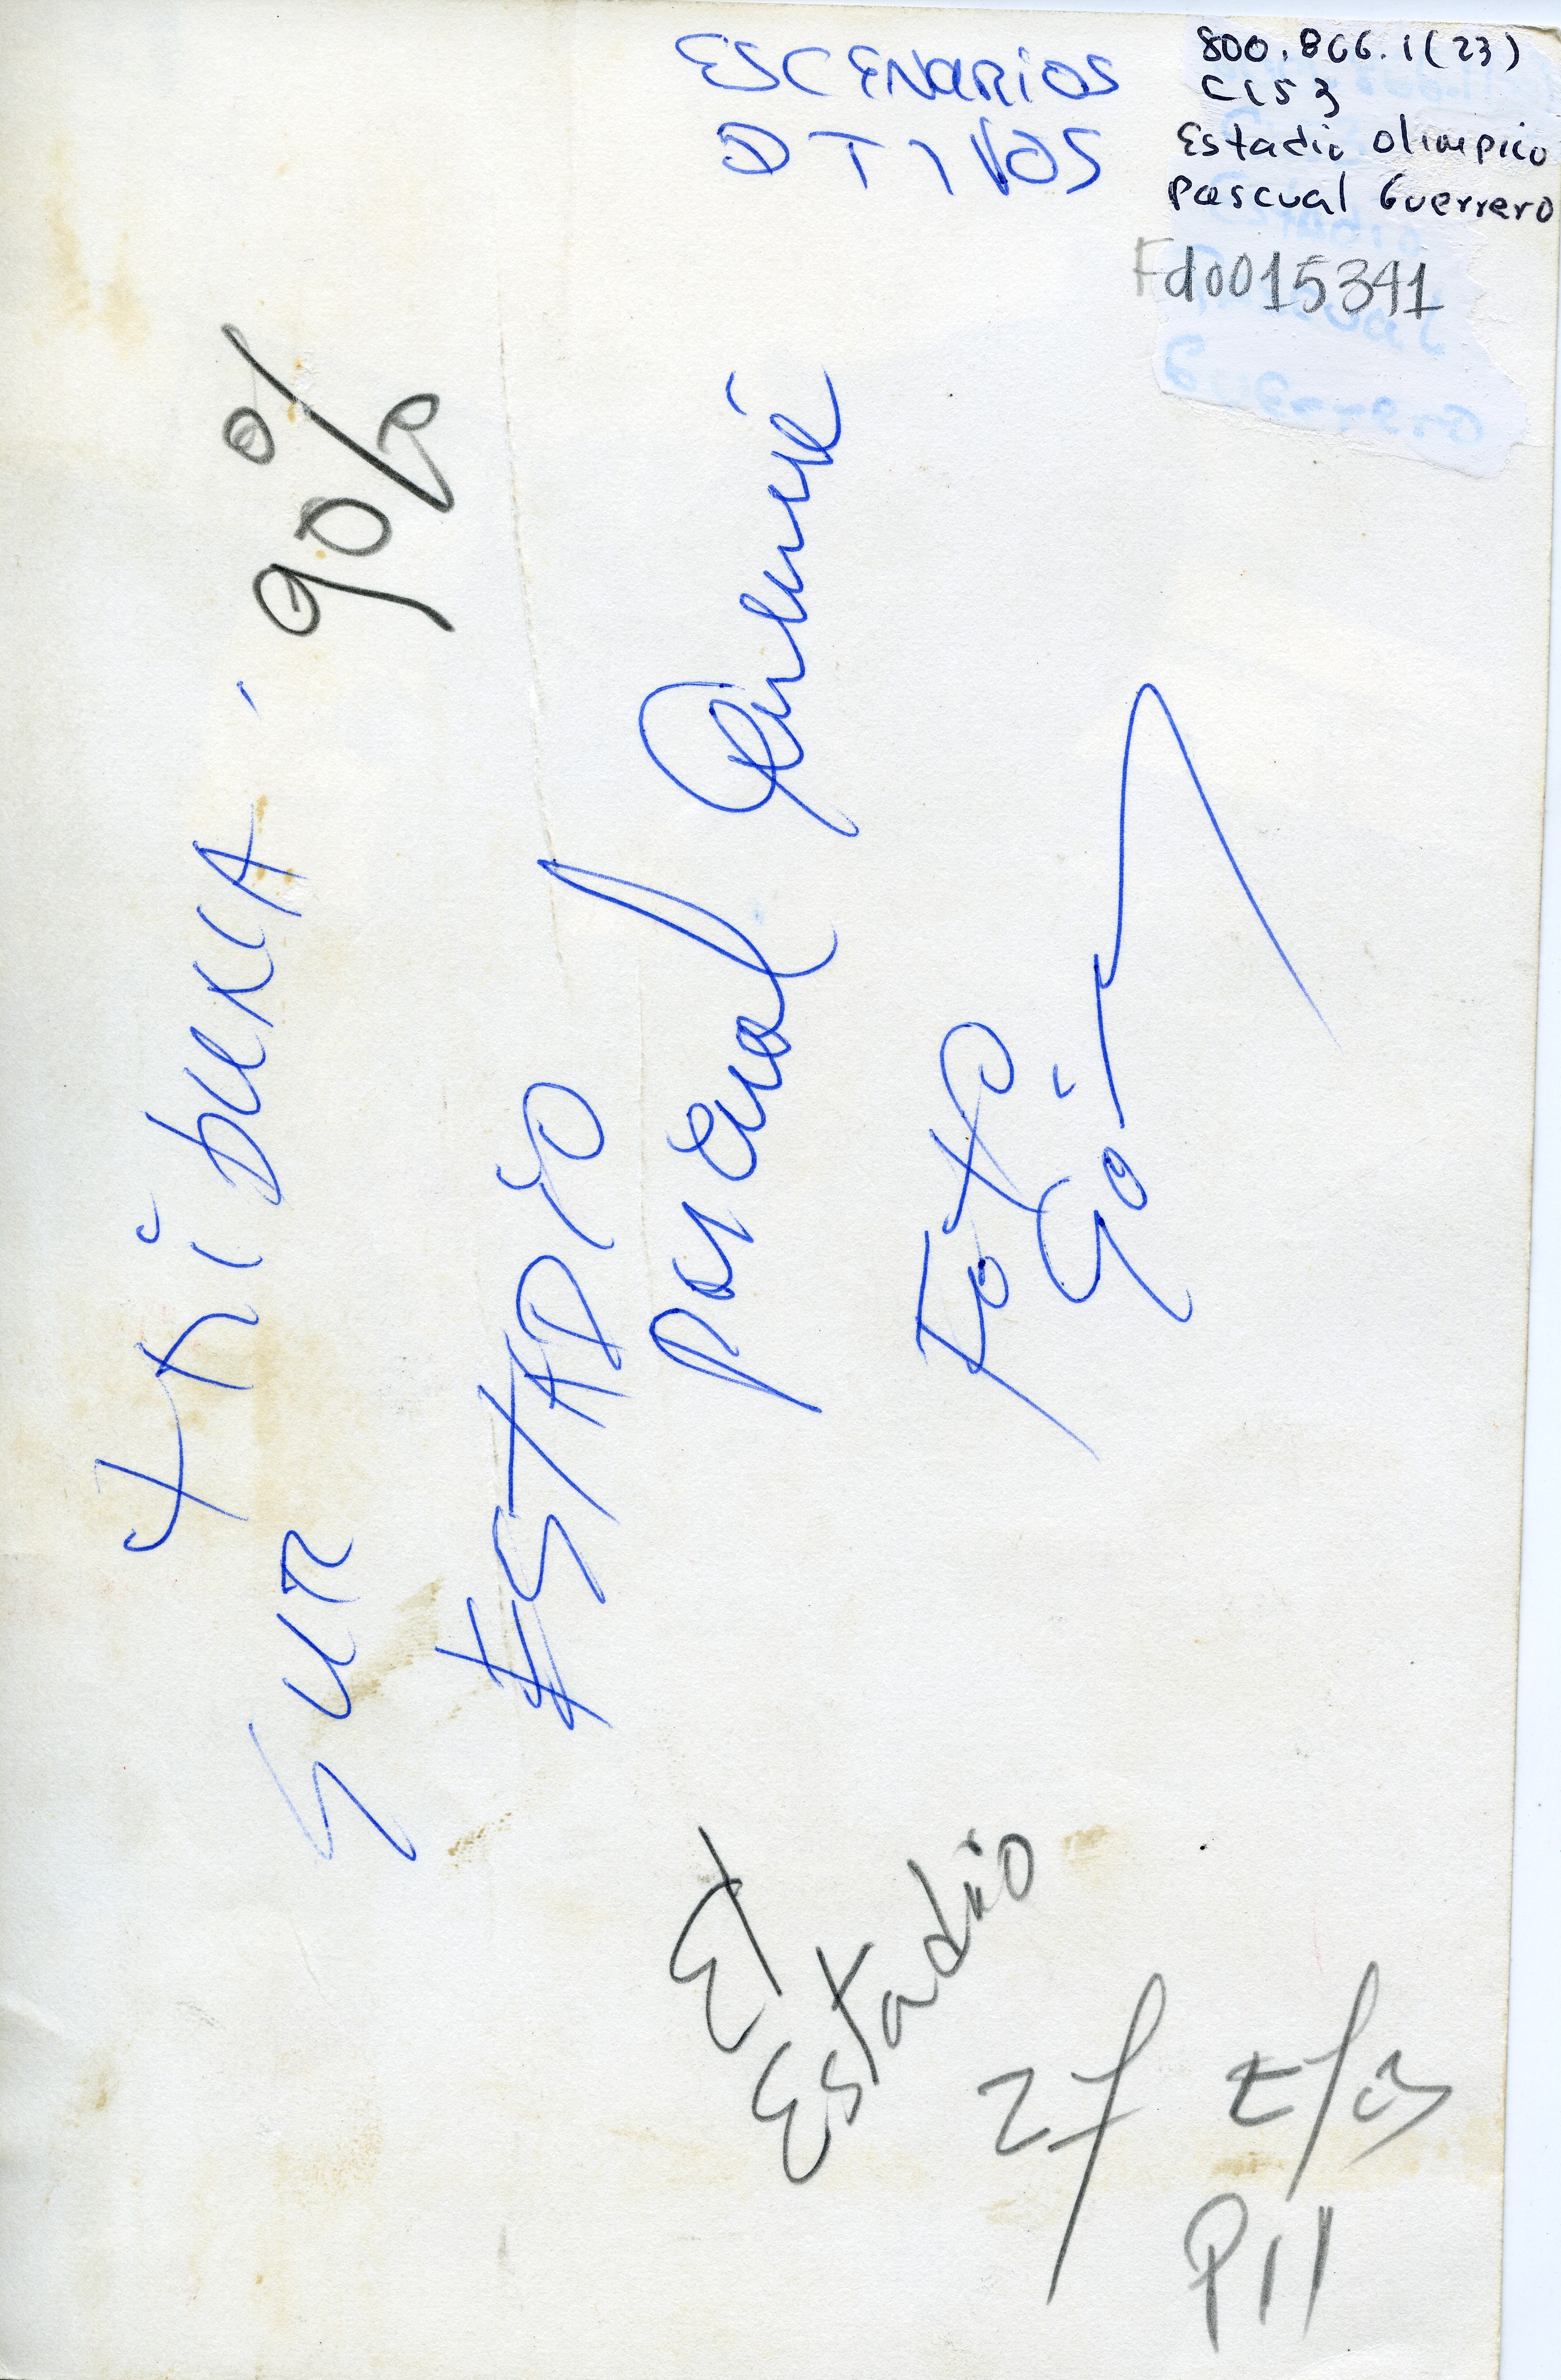 ESCENARIOS
DTIVOS
800.866.1(23)
C153
Estadio Olimpico
Pascual Guerrero
Fd0015341
tribuna - 90%
SUR
ESTADIO
Pascual
Foto
El
Estadio
P11